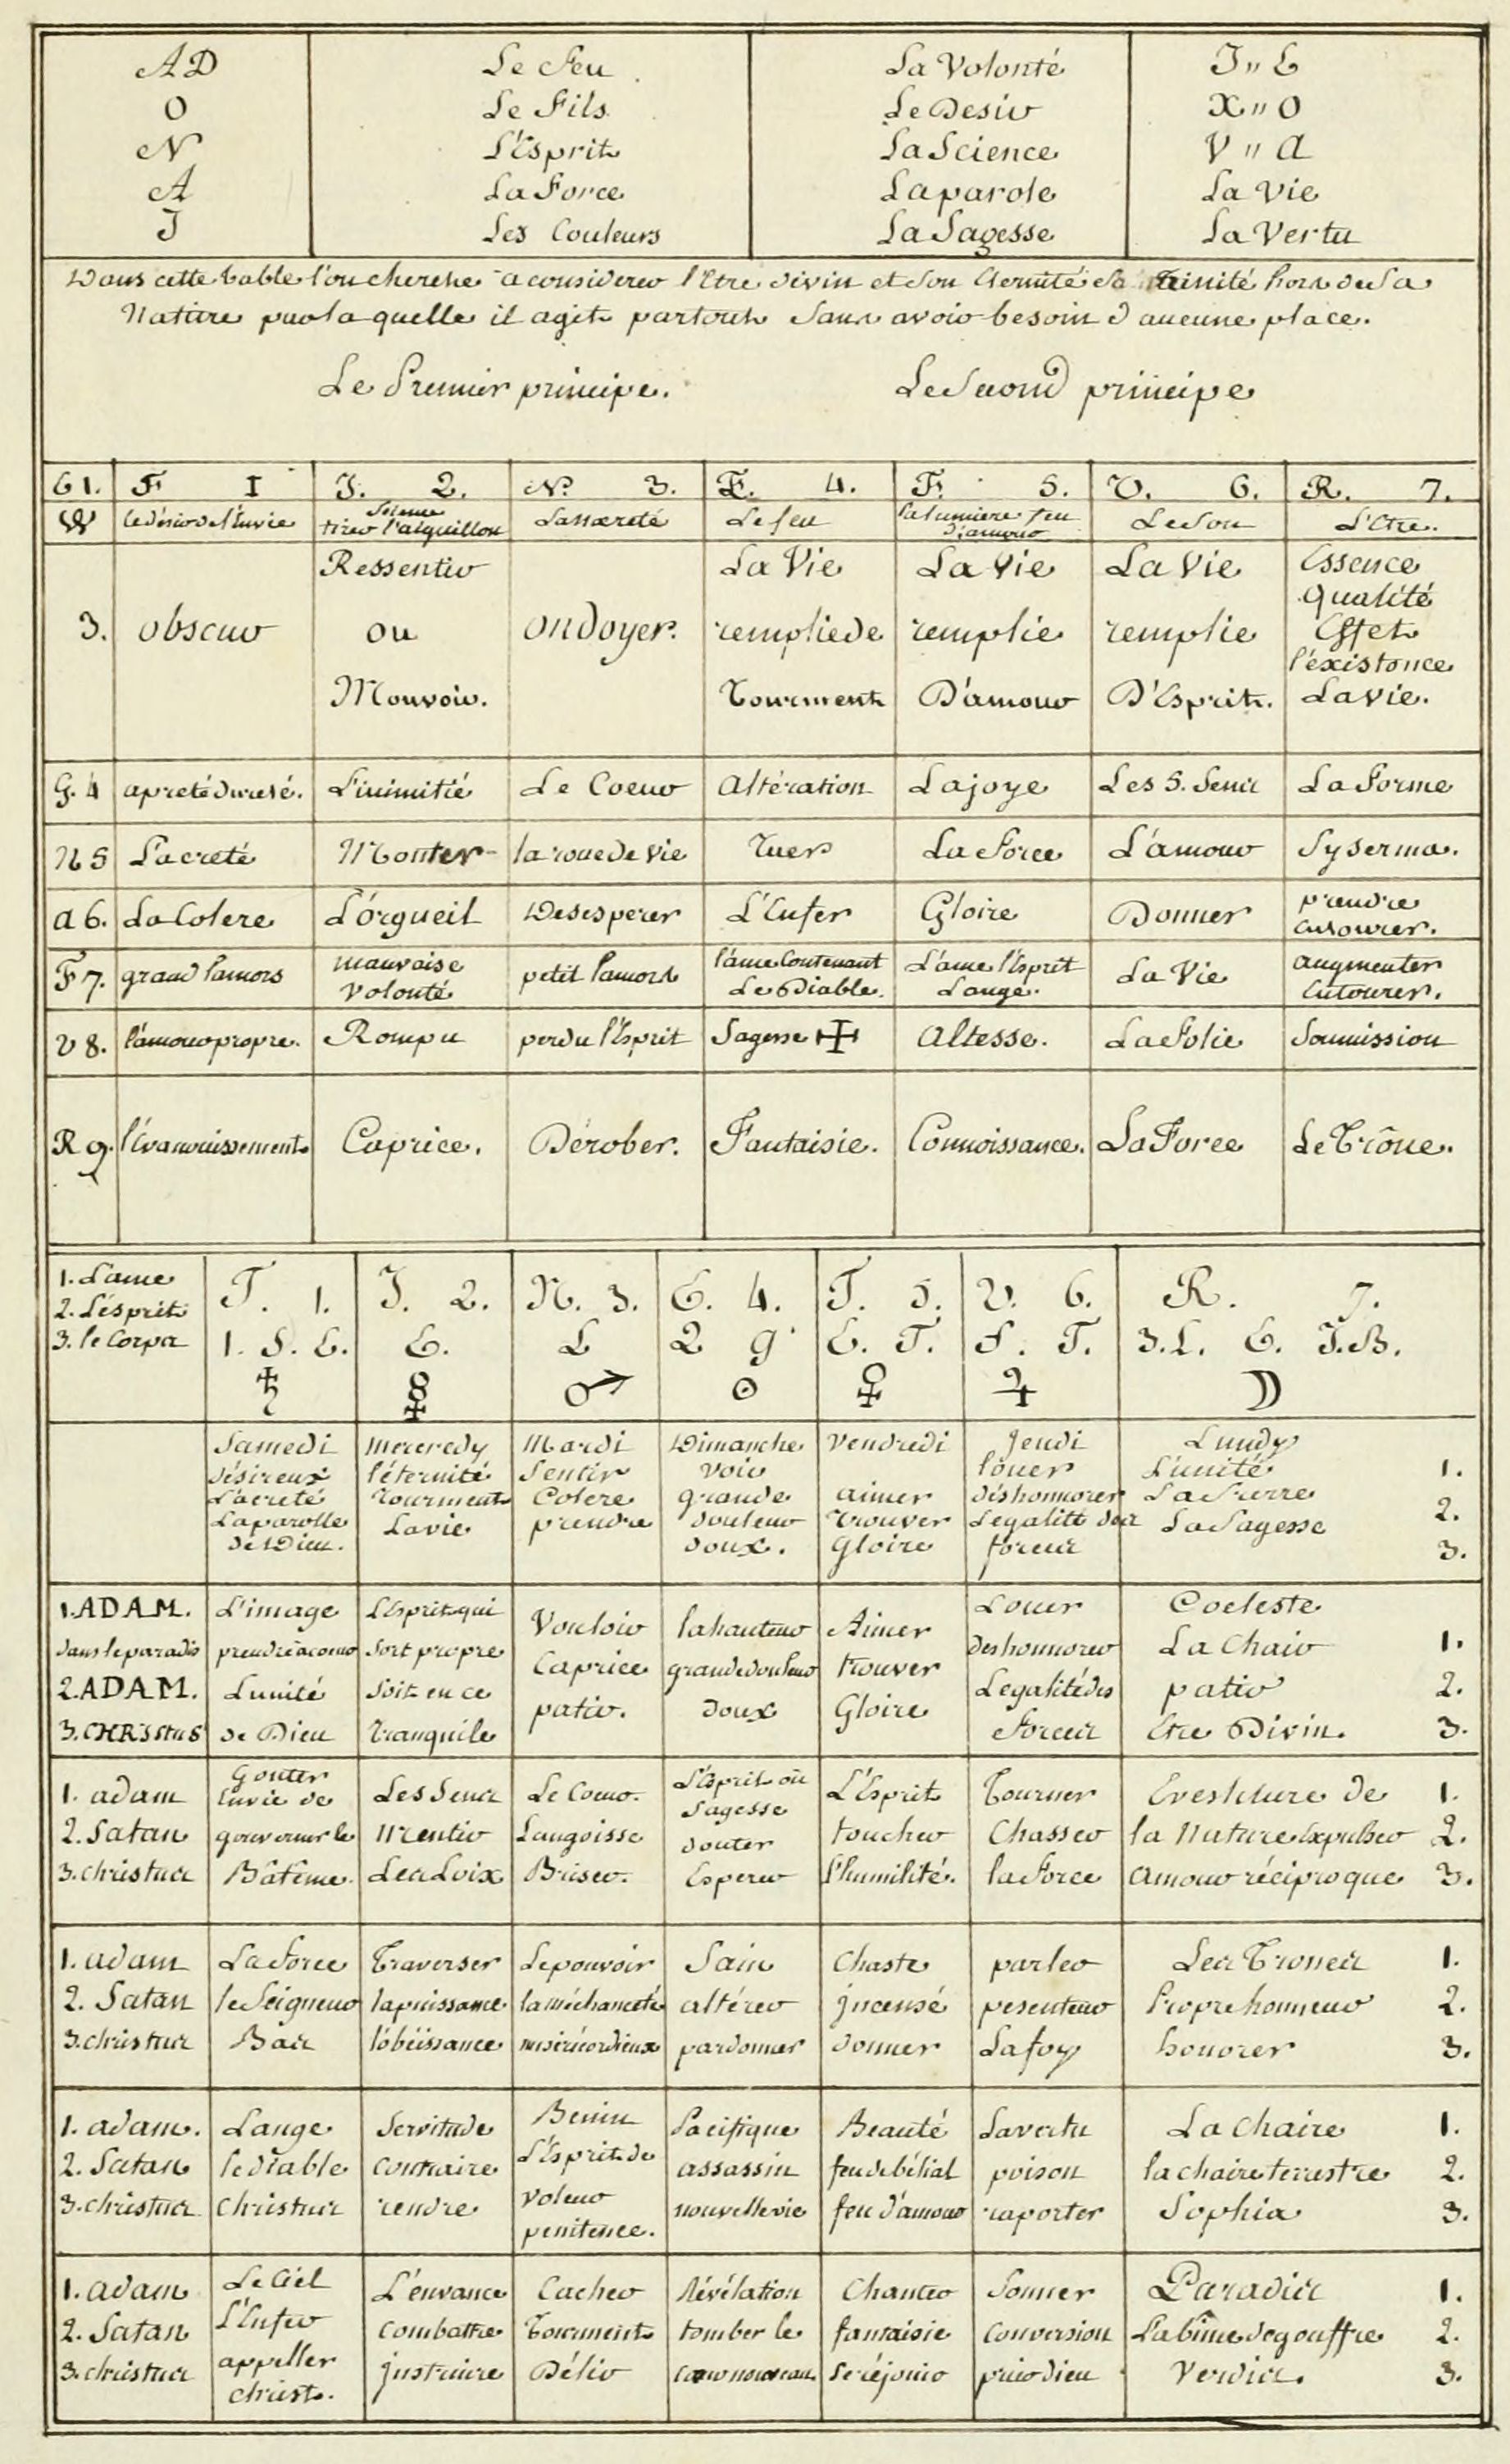 AD Le Feu La Volonté J " E
O Le Fils Le Desir X " O
N L'Esprit La Science V " A
A La Force La parole La Vie
J Les Couleurs La Sagesse La Vertu
Dans cette table l'on cherche a considerer l'Etre divin et son Eternité sa Trinité hors de sa
Nature par la quelle il agit partout sans avoir besoin d'aucune place.
Le Premier principe. Le Second principe
1. F 1 J. 2. N. 3. E. 4. F. 5. V. 6. R. 7.
W le désir de l'Envie Science tirer l'aiguillon Le feu La lumiere feu d'amour Le Son L'Etre.
Ressentir La Vie La Vie La Vie Essence
qualité
3. obscur ou ondoyer. remplie de remplie remplie Effet
l'éxistence
Mouvoir. Tourment D'amour D'Esprit. La vie.
G. 4 apreté dureté. L'inimitié Le Coeur Altération La joye Les 5. Sens La Forme
N 5 L'acreté Monter la roue de vie Tuer La Force L'amour Syserma.
a 6. La Colere L'orgueil Desesperer L'Enfer Gloire Donner prendre
F 7. grand mauvaise volonté petit l'âme contenant Le Diable. L'ame l'Esprit L'ange. La Vie augmenter Entourer.
V 8. l'amour propre. Rompu perdu l'Esprit Sagesse Altesse. La Folie Soumission
R 9. l'Evanouissement Caprice. Dérober. Fantaisie. Connoissance. La Force Le Trône.
1. L'ame T. 1. J. 2. N. 3. E. 4. T. 5. V. 6. R. 7.
2. L'ésprit
3. le Corps 1. S. E. E. L 2 9 E. T. S. T. 3. L. E. J. B.
♄ ☿ ♂ ☉ ♀ ♃ ☽
Samedi Mercredy Mardi Dimanche Vendredi Jeudi Lundy
désireux l'éternité Sentir Voir louer L'unité 1.
L'acreté Tourment Colere grande aimer déshonnorer La Pierre
La parolle La vie prendre douleur trouver L'egalité des La Sagesse 2.
de Dieu. doux. Gloire forces 3.
1. ADAM. L'image L'Esprit qui Vouloir la hauteur Aimer Louer Coeleste
dans le paradis sort propre Caprice grande douleur trouver deshonnorer La Chair 1.
2. ADAM. L'unité soit en ce patir. doux Gloire L'egalité des patir 2.
3. CHRIStuS de Dieu tranquile Forces Etre Divin. 3.
1. adam Gouter Envie de Les Sens Le Coeur. L'Esprit ou Sagesse L'Esprit Tourner de 1.
2. Satan gouverner le Mentir L'angoisse douter toucher Chasser la Nature Expulser 2.
3. christus Bâtême. Les Loix Briser. Esperer l'humilité. la Force Amour réciproque 3.
1. adam La Force Traverser Le pouvoir Sain Chaste parler Les Trones 1.
2. Satan le Seigneur la puissance la méchanceté altérer incensé pesenteur Propre honneur 2.
3. christus Bas l'obéissance miséricordieux pardonner donner La foy honorer 3.
1. adam. L'ange Servitude Benin Pacifique Beauté La vertu La Chaire 1.
2. Satan le diable Contraire L'Esprit de voleur assassin feu de bélial poison la chaire terrestre 2.
3. christus Christus rendre penitence. nouvelle vie feu d'amour raporter Sophia 3.
1. adam Le Ciel L'envance Cacher Révélation Chanter Sonner Paradis 1.
2. Satan L'Enfer combattre Tourment tomber le fantaisie Conversion L'abîme de gouffre 2.
3. christus appeller christ. instruire Délir cœur nouveau se réjouir prier dieu Verdir. 3.